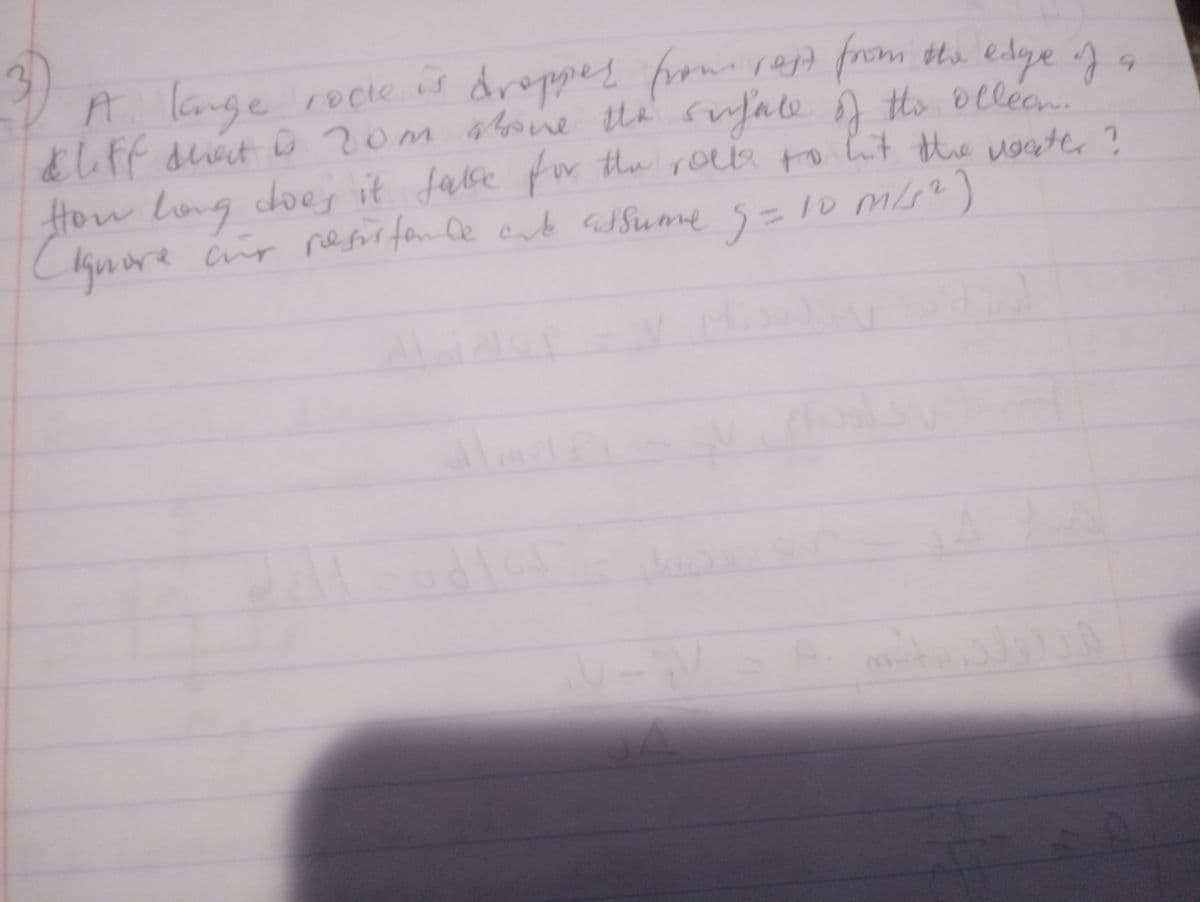 3) A large rock is dropped from rest from the edge of a
cliff that is 20m above the surface of the ocean.
How long does it take for the rock to hit the water ?
(Ignore air resistance and assume g = 10 m/s²)